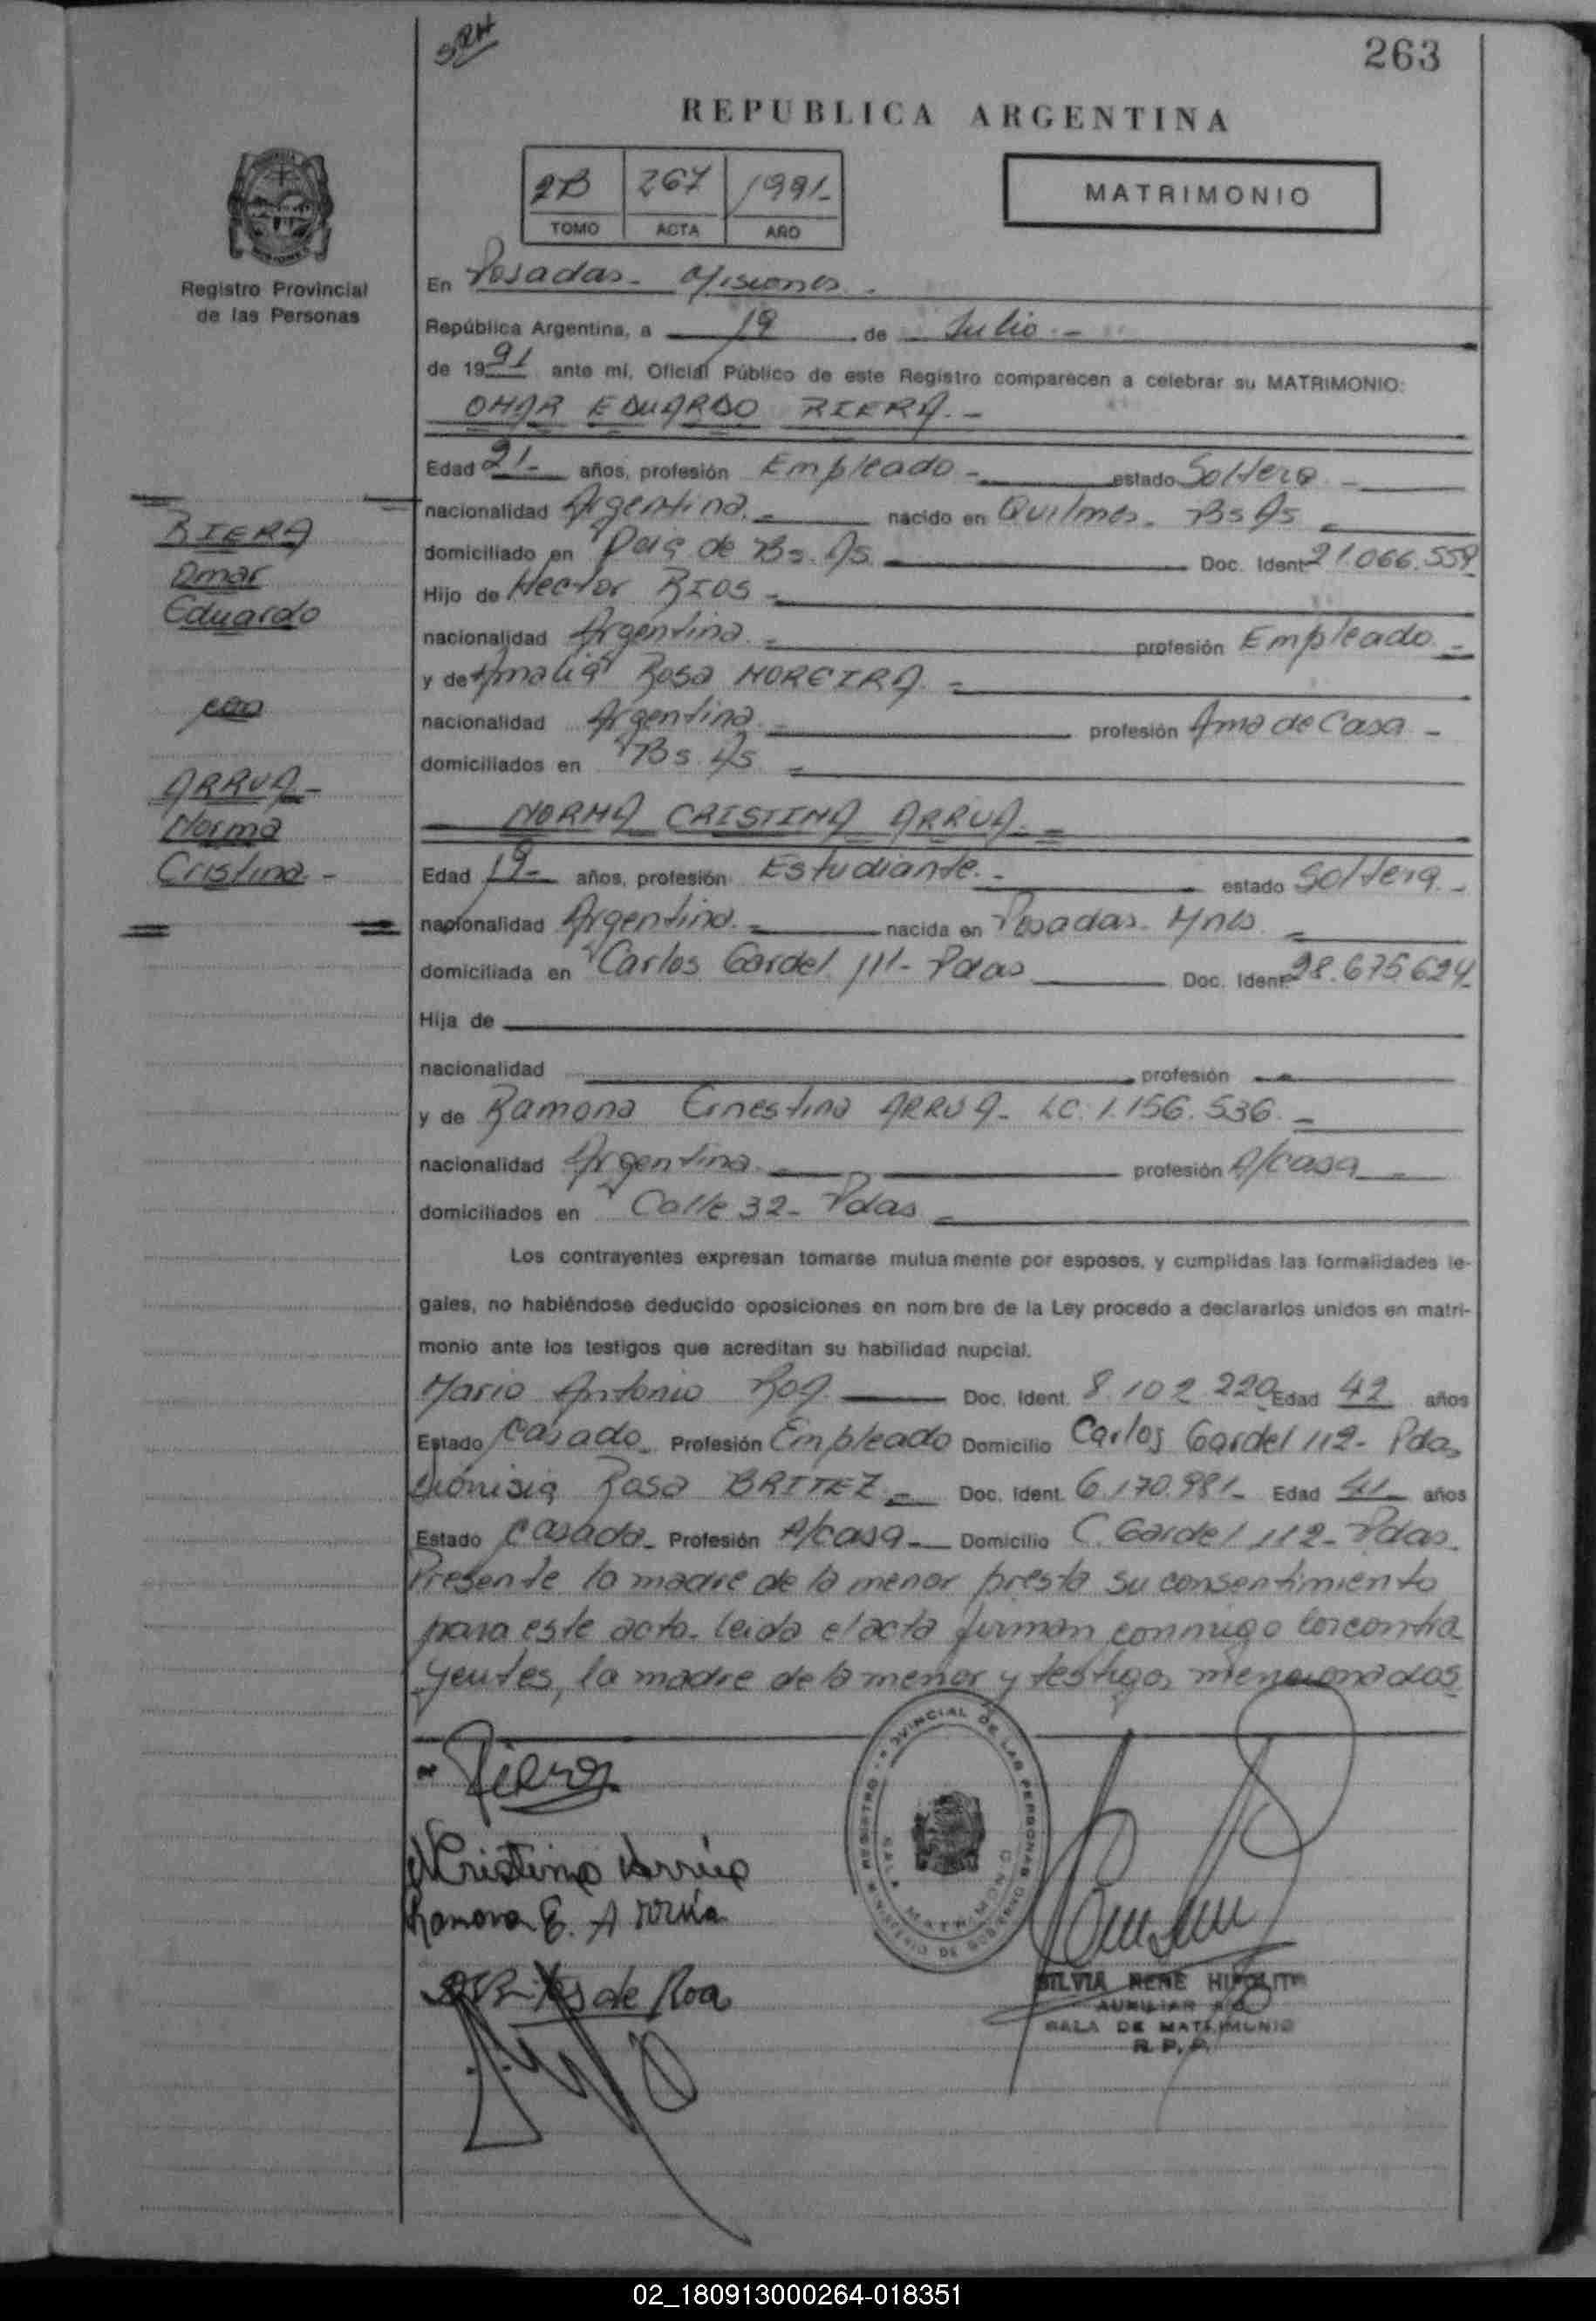 SRH
263
REPUBLICA ARGENTINA
2B 267 1991-
TOMO ACTA AÑO
MATRIMONIO
Registro Provincial
de las Personas
En Posadas - Misiones -
República Argentina, a 19 de Julio -
de 1991 ante mi, Oficial Público de este Registro comparecen a celebrar su MATRIMONIO:
OMAR EDUARDO RIERA -
Edad 21- años, profesión Empleado - estado Soltero -
nacionalidad Argentina - nacido en Quilmes - Bs As -
domiciliado en Pcia de Bs. As. Doc. Ident 21.066.559
Hijo de Hector RIOS -
nacionalidad Argentina - profesión Empleado -
y de Amalia Rosa MOREIRA -
nacionalidad Argentina - profesión Ama de Casa -
domiciliados en Bs. As -
RIERA
Omar
Eduardo
con
ARRUA -
Norma
Cristina -
NORMA CRISTINA ARRUA -
Edad 19- años, profesión Estudiante - estado Soltera -
nacionalidad Argentina - nacida en Posadas - Mnes -
domiciliada en Carlos Gardel 111- Pdas Doc. Ident 28.675.624
Hija de
nacionalidad profesión
y de Ramona Ernestina ARRUA - LC. 1.156.536 -
nacionalidad Argentina - profesión A/casa -
domiciliados en Calle 32 - Pdas -
Los contrayentes expresan tomarse mutua mente por esposos, y cumplidas las formalidades le-
gales, no habiéndose deducido oposiciones en nom bre de la Ley procedo a declararlos unidos en matri-
monio ante los testigos que acreditan su habilidad nupcial.
Mario Antonio ROA Doc. Ident. 8.102.220 Edad 42 años
Estado Casado - Profesión Empleado Domicilio Carlos Gardel 112- Pdas
Dionisia Rosa BRITEZ - Doc. Ident. 6.170.981- Edad 41- años
Estado Casada - Profesión A/casa - Domicilio C. Gardel 112- Pdas.
Presente la madre de la menor presta su consentimiento
para este acto - leida el acta firman conmigo los contra
yentes, la madre de la menor y testigos mencionados
Riera
N Cristina Arrúa
Ramona E. Arrúa
de Roa
REGISTRO PROVINCIAL DE LAS PERSONAS
MINISTERIO DE GOBIERNO
SALA MATRIMONIO
SILVIA RENE HIPOLITO
AUXILIAR
SALA DE MATRIMONIO
R. P. P.
02_180913000264-018351